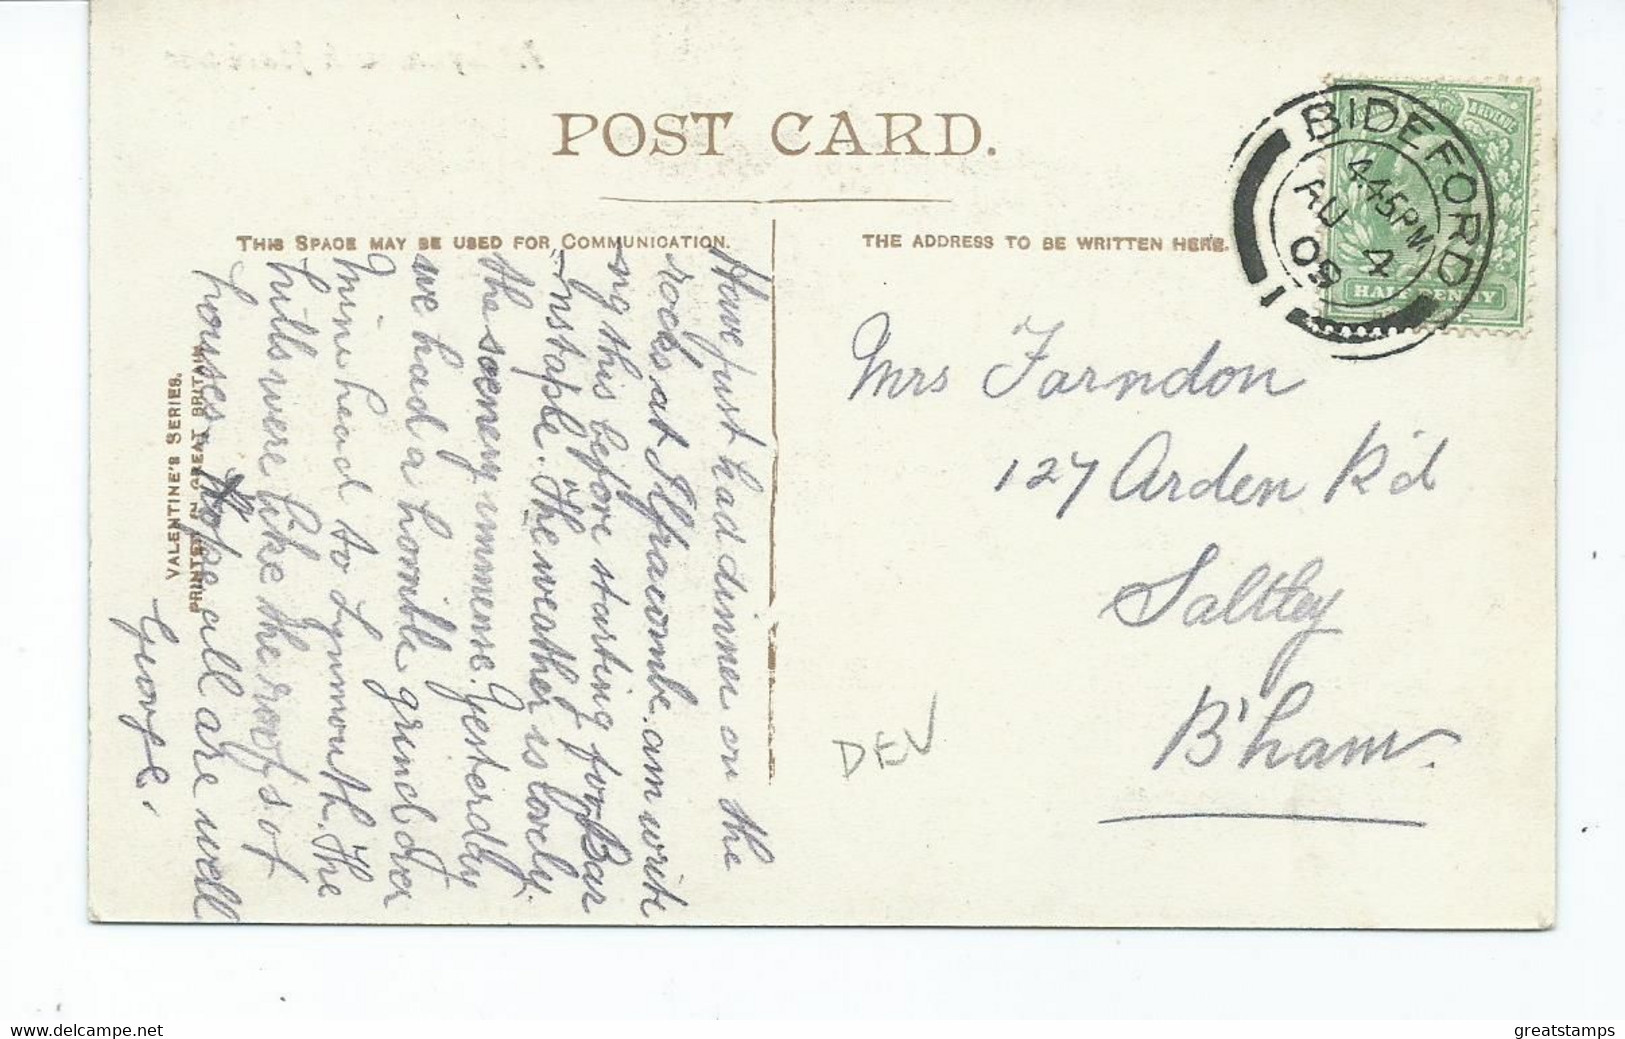 POST CARD.
THIS SPACE MAY BE USED FOR COMMUNICATION.
THE ADDRESS TO BE WRITTEN HERE.
BIDEFORD
4.45PM
AU 4
09
1
REVENUE
HALF PENNY
Have just had dinner on the
rocks at Ilfracombe. am writ
ing this before starting for Bar
nstaple. The weather is lovely.
the scenery immense. Yesterday
we had a horrible grind over
Minehead to Lynmouth. The
hills were like the roofs of
houses. Hope all are well
George.
VALENTINE'S SERIES.
PRINTED IN GREAT BRITAIN
Mrs Farndon
127 Arden R'd
Saltley
B'ham
DEV
delcampe.net
greatstamps